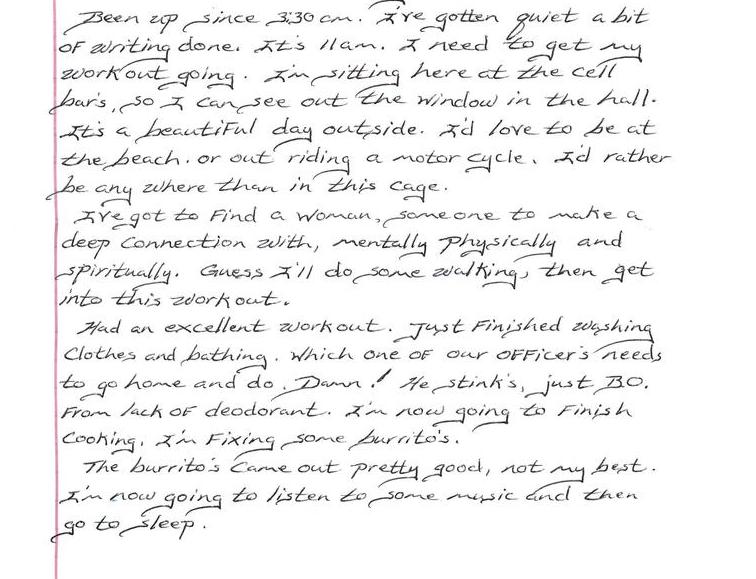 Been up since 3:30 am. I've gotten quiet a bit
of writing done. It's 11am. I need to get my
workout going. I'm sitting here at the cell
bar's, so I can see out the window in the hall.
It's a beautiful day outside. I'd love to be at
the beach. or out riding a motor cycle. I'd rather
be any where than in this cage.
I've got to find a woman, someone to make a
deep connection with, mentally physically and
spiritually. Guess I'll do some walking, then get
into this workout.
Had an excellent workout. Just finished washing
clothes and bathing. Which one of our officer's needs
to go home and do. Damn! He stink's, just B.O.
from lack of deodorant. I'm now going to finish
cooking. I'm fixing some burrito's.
The burrito's came out pretty good, not my best.
I'm now going to listen to some music and then
go to sleep.